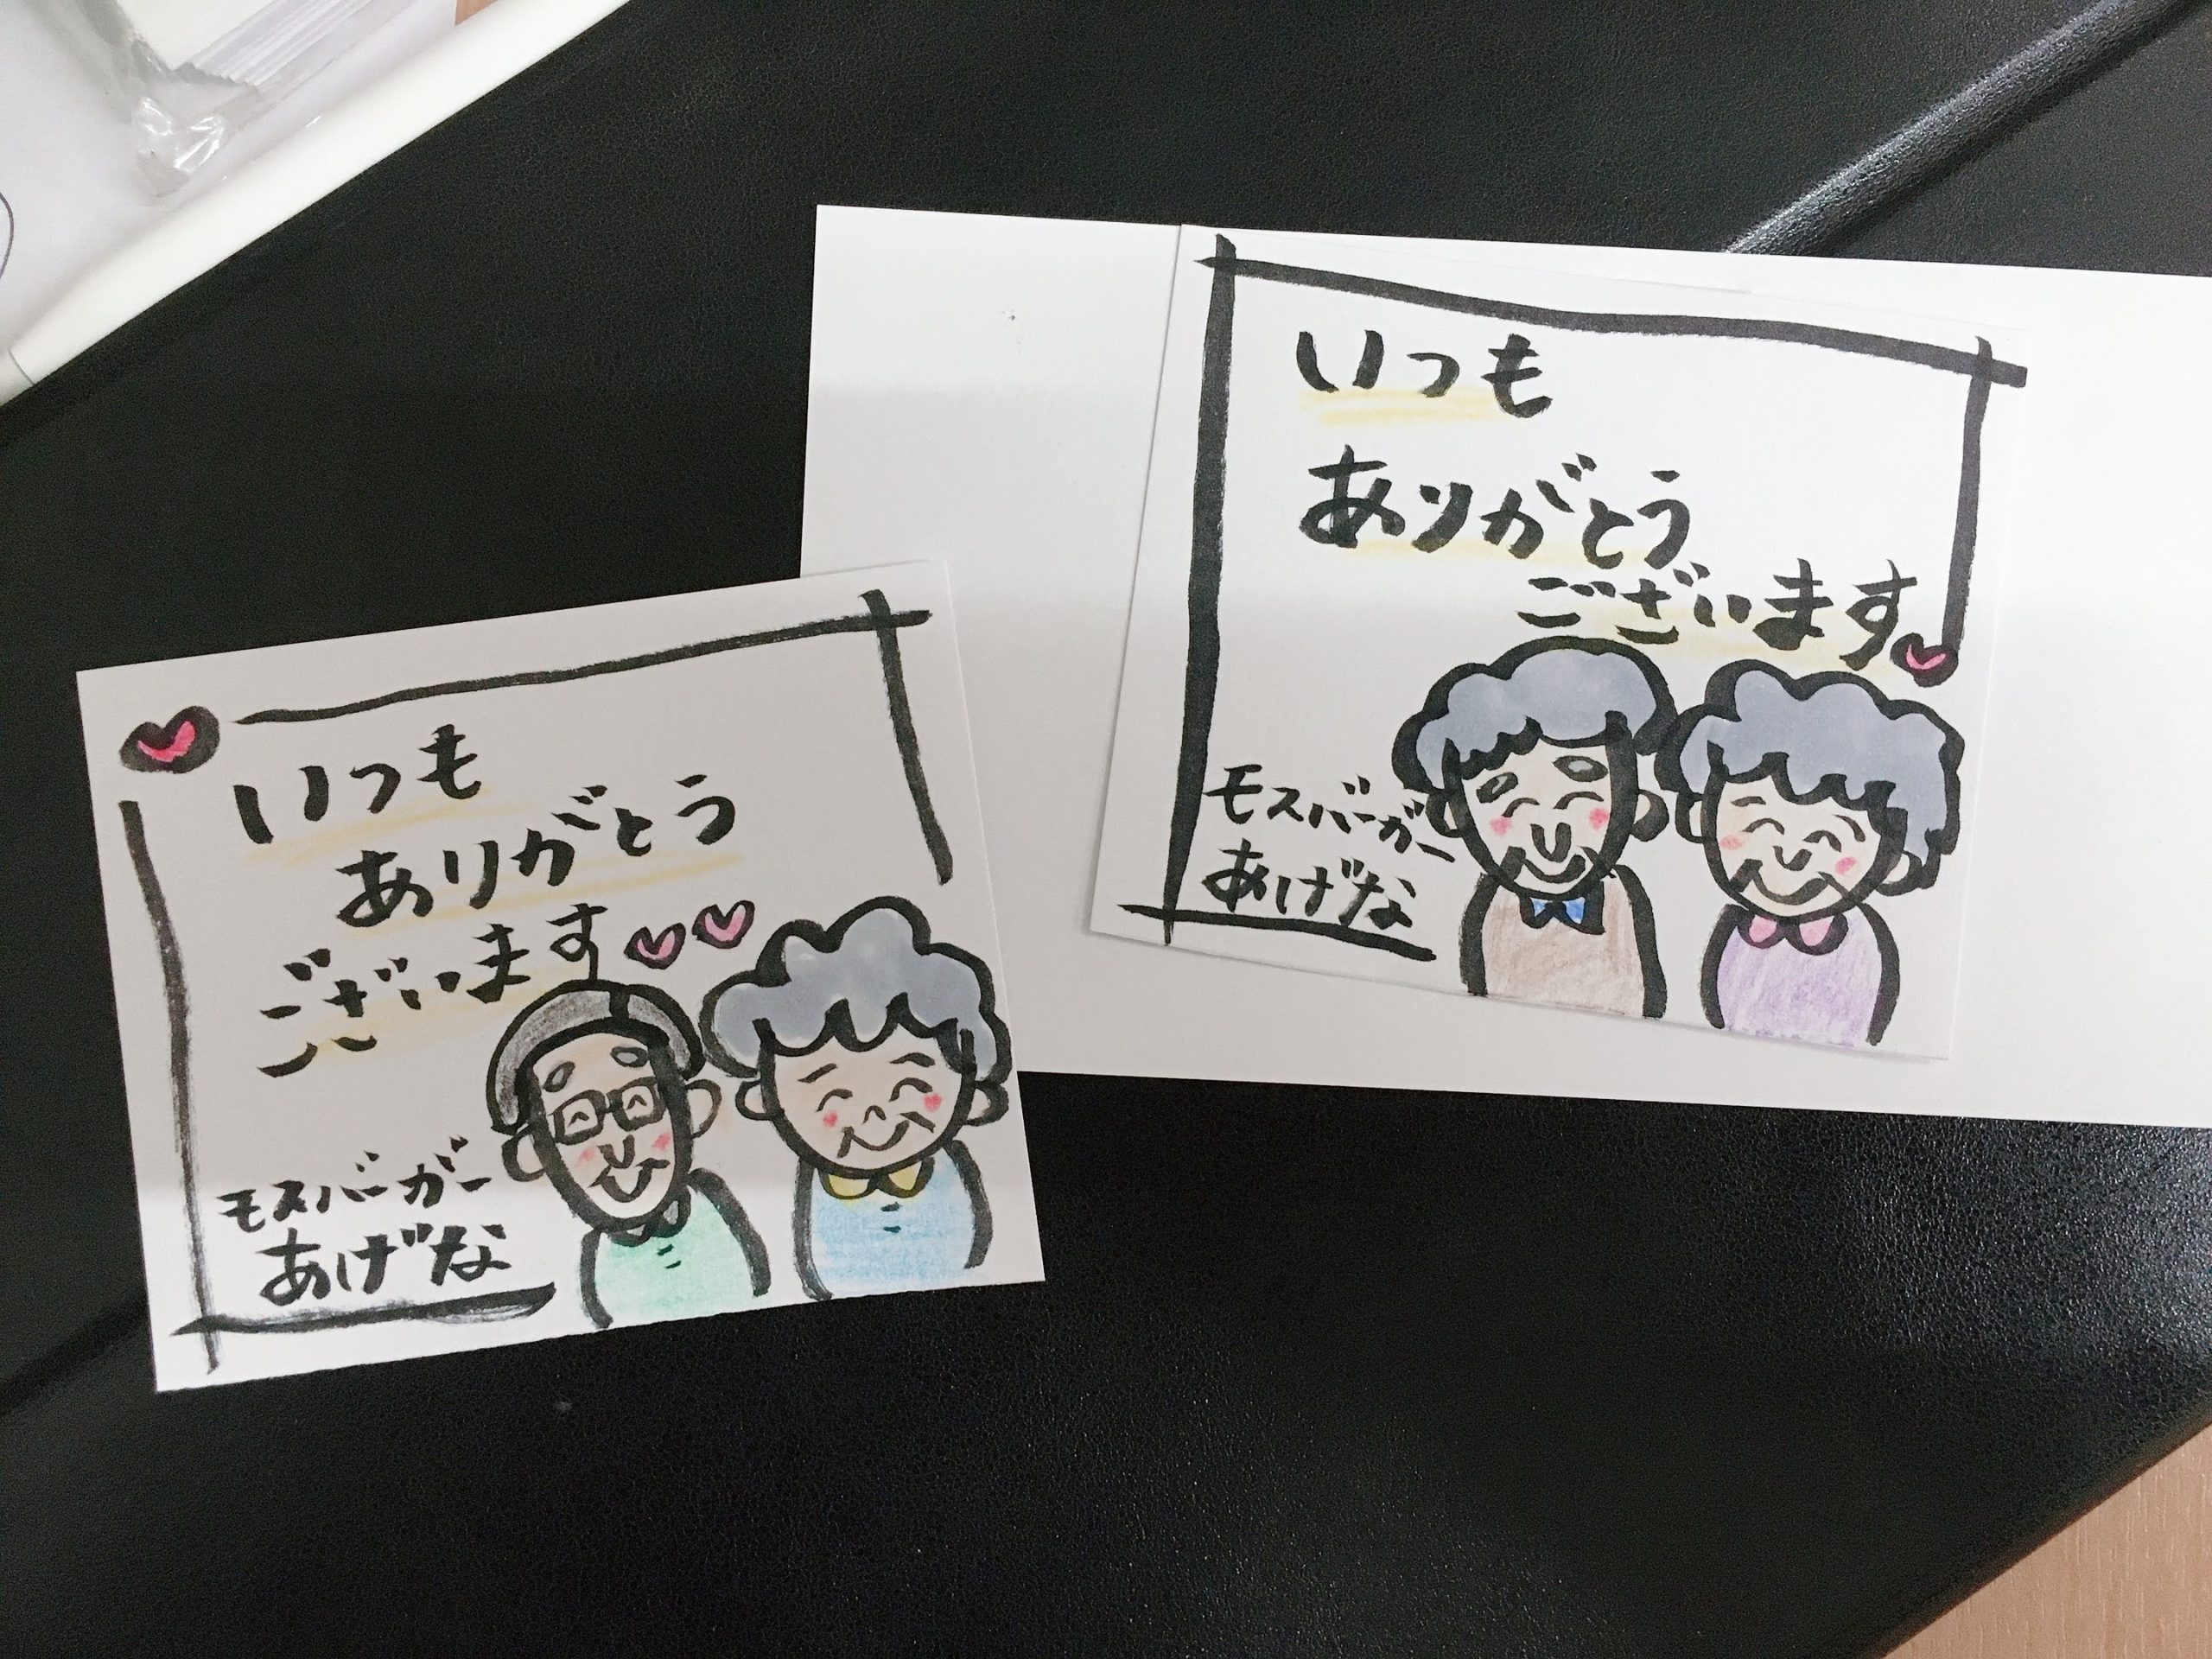 いつも
ありがとう
ございます
モスバーガー
あげな
いつも
ありがとう
ございます
モスバーガー
あげな